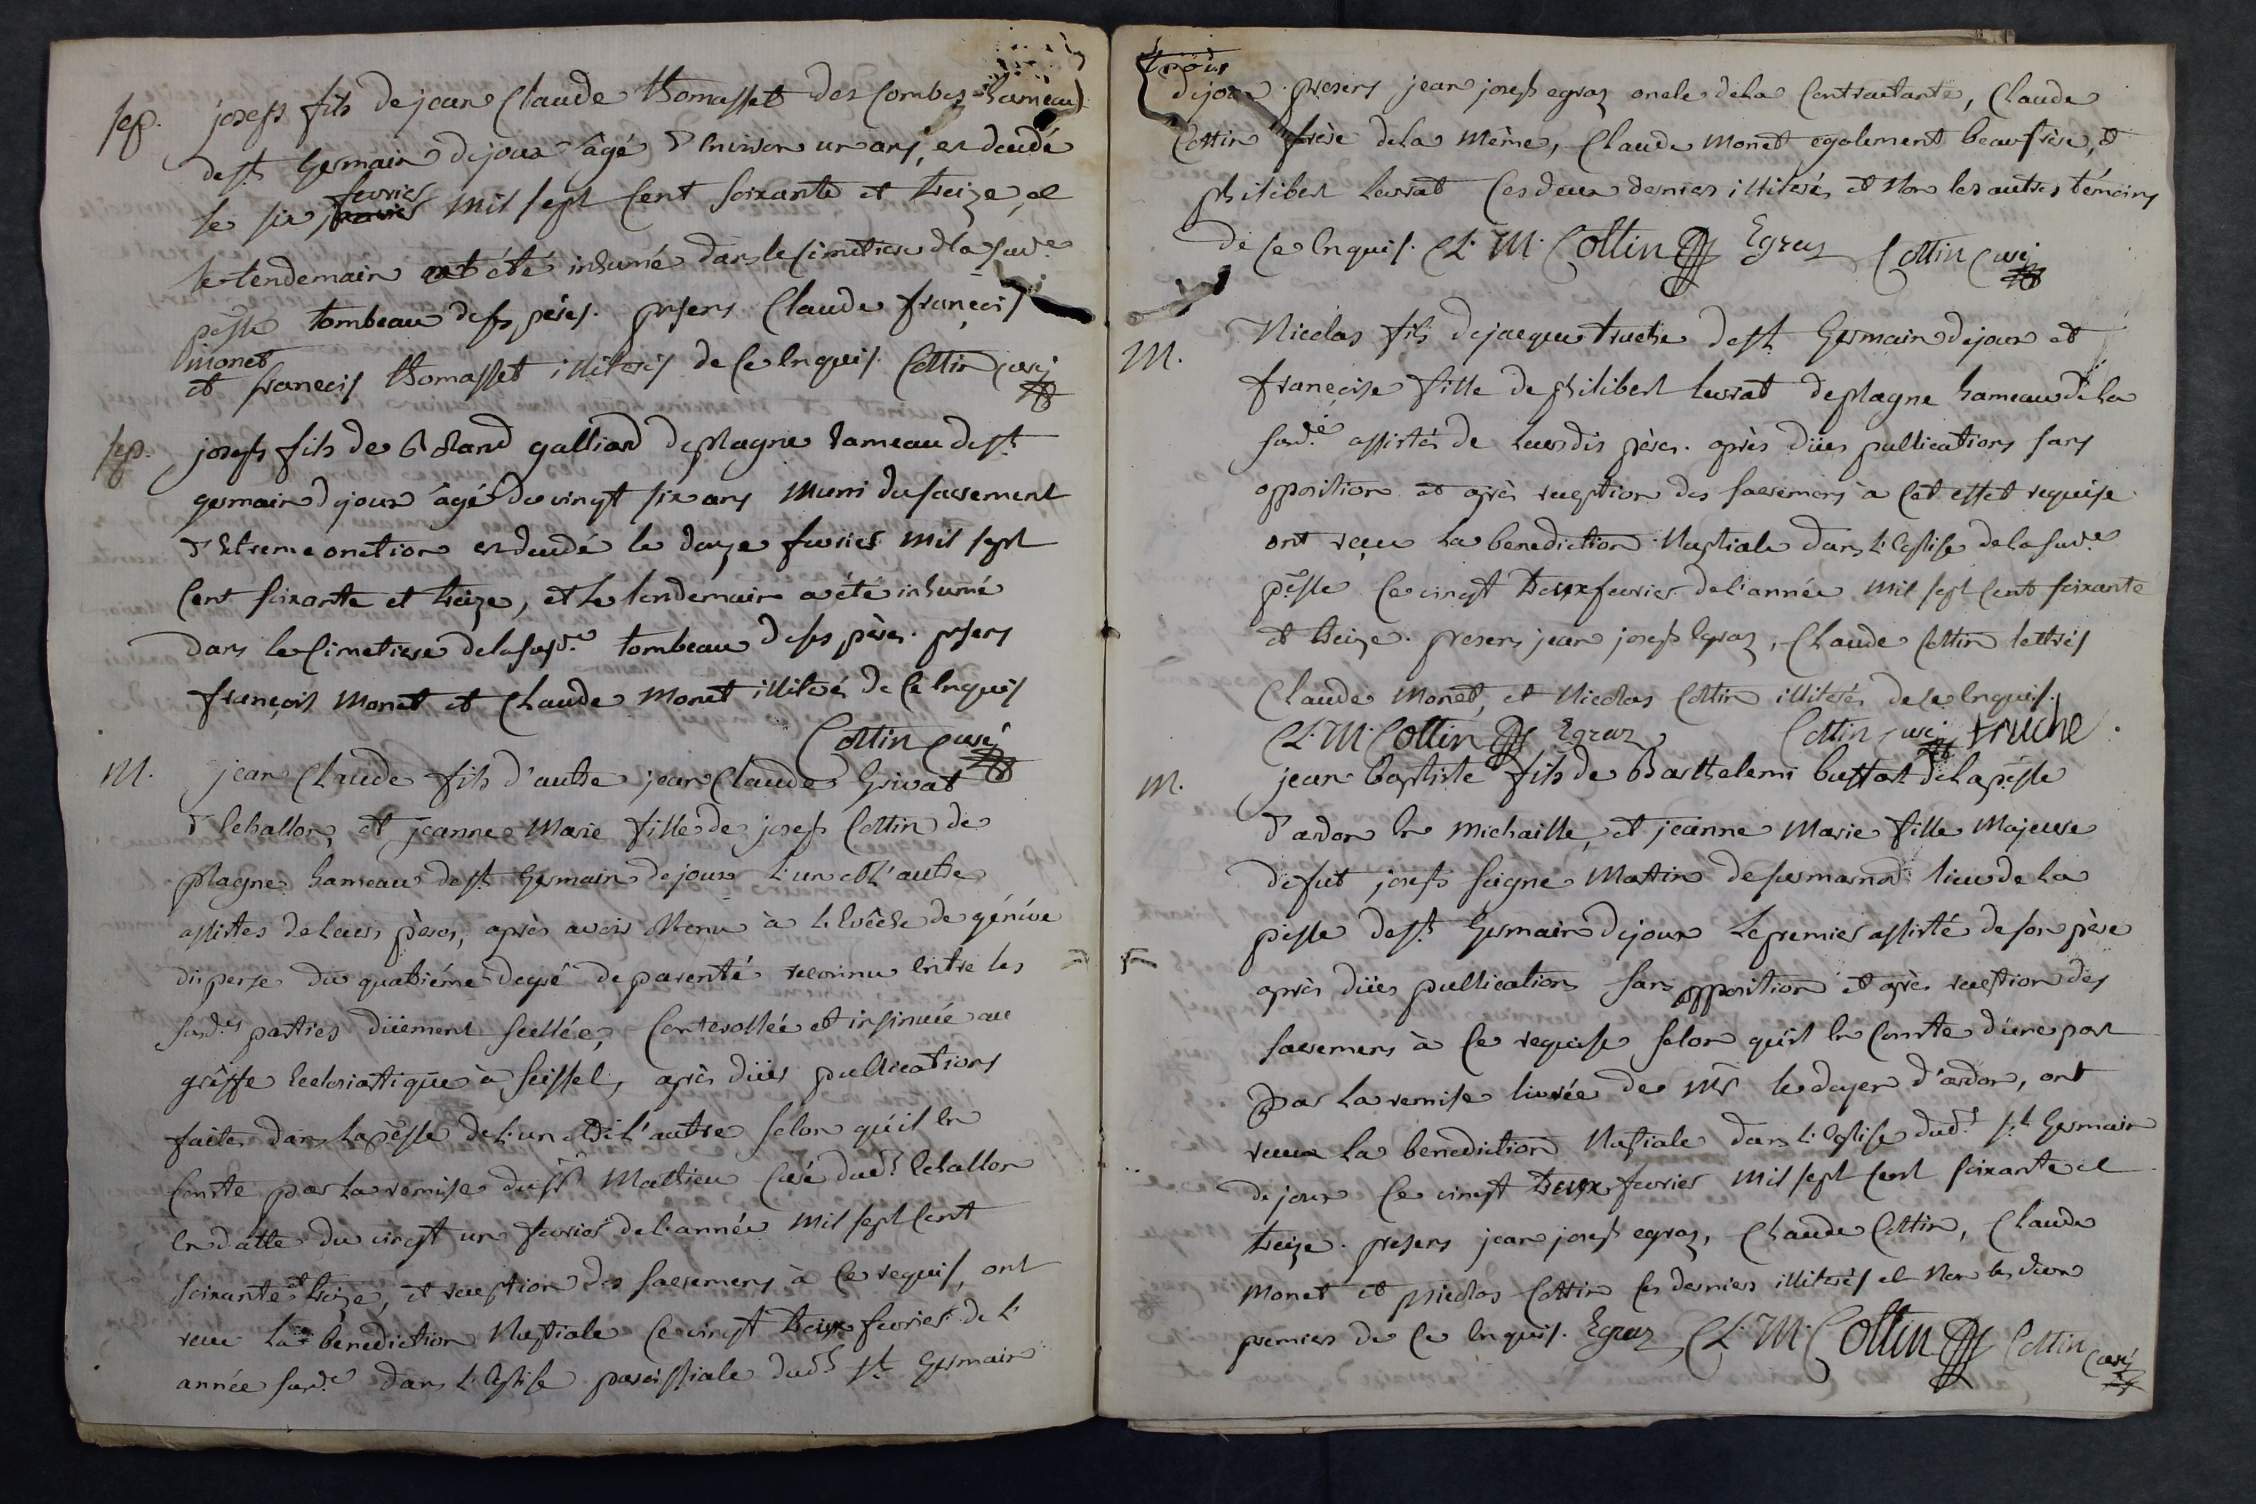 sep. joseph fils de jean Claude thomasset des Combes hameau
de st. Germain dejoux âgé d'environ un ans, est decedé
fevrier
le six janvier mil sept Cent soixante et treize, et
le lendemain at été inhumé dans le Cimetiere de la susd.e
p.sse tombeau de ses peres. presens Claude françois
monet
et francois thomasset illiterés de Ce enquis. Cottin curé
sep. joseph fils de Roland galliard de plagne hameau de st.
germain dejoux âgé de vingt six ans muni du sacrement
d'Extreme onction est decedé le douze fevrier mil sept
Cent soixante et treize, et le lendemain a été inhumé
dans le Cimetiere de la susd.e tombeau de ses pères. presens
françois monet et Claude monet illiterés de Ce enquis
Cottin curé
M. jean Claude fils d'autre jean Claude Grivat
d'Echallon, et jeanne Marie fille de joseph Cottin de
plagne hameau de st. Germain dejoux l'un et l'autre
assistes de leurs pères, après avoir obtenu à l'Evêché de génève
dispense du quatriéme degré de parenté reconnu Entre les
susd.es parties düement scellée, Controllée et insinuée au
grêffe Ecclesiastique à Seissel, après dües publications
faites dans la p.sse de l'un et de l'autre selon qu'il en
Conste par la remise du sr. Mathieu Curé dud.t Echallon
en datte du vingt un fevrier de l'année mil sept Cent
soixante et treize, et reception des sacremens à Ce requis, ont
reçu la benediction Nuptiale Ce vingt deux fevrier de l'
année susd.e dans L'Eglise paroissiale dud.t st. Germain
dejoux. presens jean joseph egraz oncle de la Contractante, Claude
Cottin frère de la même, Claude Monet egalement beaufrère, et
philibert Levrat Ces deux derniers illiterés et Non les autres témoins
de Ce Enquis. C.L. M. Cottin Egraz Cottin curé
M. Nicolas fils de jacque truche de st. Germain dejoux et
françoise fille de philibert levrat de plagne hameau de la
susd.e assistés de Leursdis pères. après dües publications sans
opposition et après reception des sacremens à Cet effet requise
ont reçu La benediction Nuptiale dans L'Eglise de la susd.e
p.sse Ce vingt deux fevrier de l'année mil sept Cent soixante
et treize. presens jean joseph Egraz, Claude Cottin lettrés
Claude Monet, et Nicolas Cottin illiterés de ce Enquis.
C.L. M. Cottin Egraz Cottin curé truche
M. jean Baptiste fils de Barthelemi buffart de la p.sse
d'ardon En Michaille, et jeanne Marie fille Majeure
de fut joseph Seigne Martin de lieu de La
p.sse de st. Germain dejoux Le premier assisté de son père
après dües publications sans opposition et après reception des
sacremens à Ce requise selon qu'il En Conste d'une part
par La remise livrée de Mr le doyen d'ardon, ont
reçu La benediction Nuptiale dans L'Eglise dud.t st. Germain
dejoux Ce vingt deux fevrier mil sept Cent soixante et
treize. presens jean joseph egraz, Claude Cottin, Claude
Monet et Nicolas Cottin Ces derniers illiterés et Non les deux
premiers de Ce Enquis. Egraz C.L. M. Cottin Cottin curé